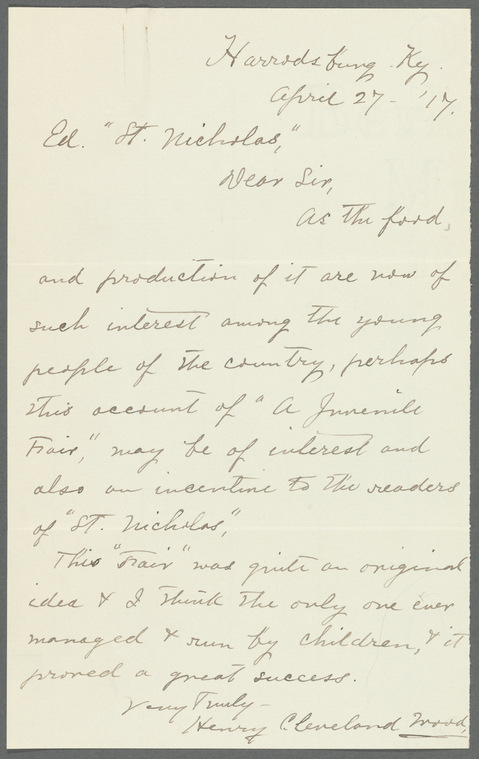 Harrodsburg Ky.
April 27 - '17.
Ed. "St. Nicholas,"
Dear Sir,
As the food,
and production of it are now of
such interest among the young
people of the country, perhaps
this account of "A Juvenile
Fair," may be of interest and
also an incentive to the readers
of "St. Nicholas,"
This "Fair" was quite an original
idea & I think the only one ever
managed & run by children, & it
proved a great success.
Very Truly -
Henry Cleveland Wood,